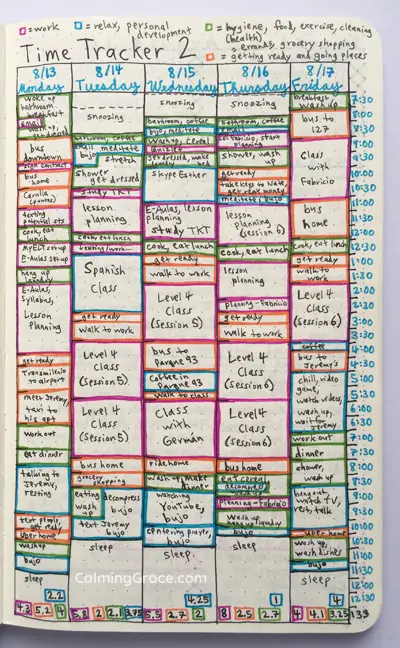 =work
=relax, personal development
=hygiene, food, exercise, cleaning (health)
=errands, grocery shopping
=getting ready and going places
Time Tracker 2
8/13 8/14 8/15 8/16 8/17
Monday Tuesday Wednesday Thursday Friday
woke up
bathroom
breakfast
email
bus
downtown
bus
home
Camila
texting
cook, eat
lunch
MyELT set-up
E-Aulas set-up
hang up
laundry
E-Aulas,
Syllabus,
Lesson
Planning
get ready
Transmilenio
to airport
meet Jeremy,
taxi to
his apt
workout
eat dinner
talking to
Jeremy,
resting
text people,
get ready
Uber home
wash up
bujo
sleep
2.2
4.3 5.2 4
snoozing
bathroom, coffee
email
bujo
meditate
stretch
shower
get dressed
study TKT
lesson
planning
cook, eat lunch
texting/work
Spanish
Class
get ready
walk to work
Level 4
Class
(Session 5)
Level 4
Class
(Session 5)
bus home
grocery
shopping
eating
wash
up
decompress
bujo
text Jeremy
bujo
sleep
5.8 2 2.1 3.75
snoozing
bathroom, coffee
bujo, meditate
wash up, cereal
quizzes
get dressed, make
Skype Esther
E-Aulas, lesson
planning
study TKT
cook, eat lunch
get ready
walk to work
Level 4
Class
(Session 5)
bus to
Parque 93
Coffee in
Parque 93
walk to class
Class
with
Germán
ride home
wash up, make
dinner
watching
YouTube,
bujo
centering prayer,
bujo
sleep
4.25
5.5 2.7 2
snoozing
bathroom, coffee
email
planning
shower, wash
up
get ready
take keys to Nate,
meditate, bujo
lesson
planning
(session 6)
cook, eat lunch
lesson
planning
planning-Fabricio
get ready
walk to work
Level 4
Class
(Session 6)
Level 4
Class
(Session 6)
bus home
eat cereal
decompress
planning-Fabricio
wash up,
hang up laundry
bujo
sleep
1
8 2.5 2.7
breakfast
wash up
bus to
127
Class
with
Fabricio
bus
home
cook, eat lunch
get ready
walk to
work
Level 4
Class
(Session 6)
coffee
bus to
Jeremy's
chill, video
game,
watch videos,
wash up,
wait for
Jeremy
work out
dinner
shower,
wash up
hang out,
watch TV,
rest, talk
Uber home
wash up,
wash dishes
bujo
sleep
4
4 4.1 3.25
7:30
8:00
8:30
9:00
9:30
10:00
10:30
11:00
11:30
12:00
12:30
1:00
1:30
2:00
2:30
3:00
3:30
4:00
4:30
5:00
5:30
6:00
6:30
7:00
7:30
8:00
8:30
9:00
9:30
10:00
10:30
11:00
11:30
12:00
12:30
133
CalmingGrace.com